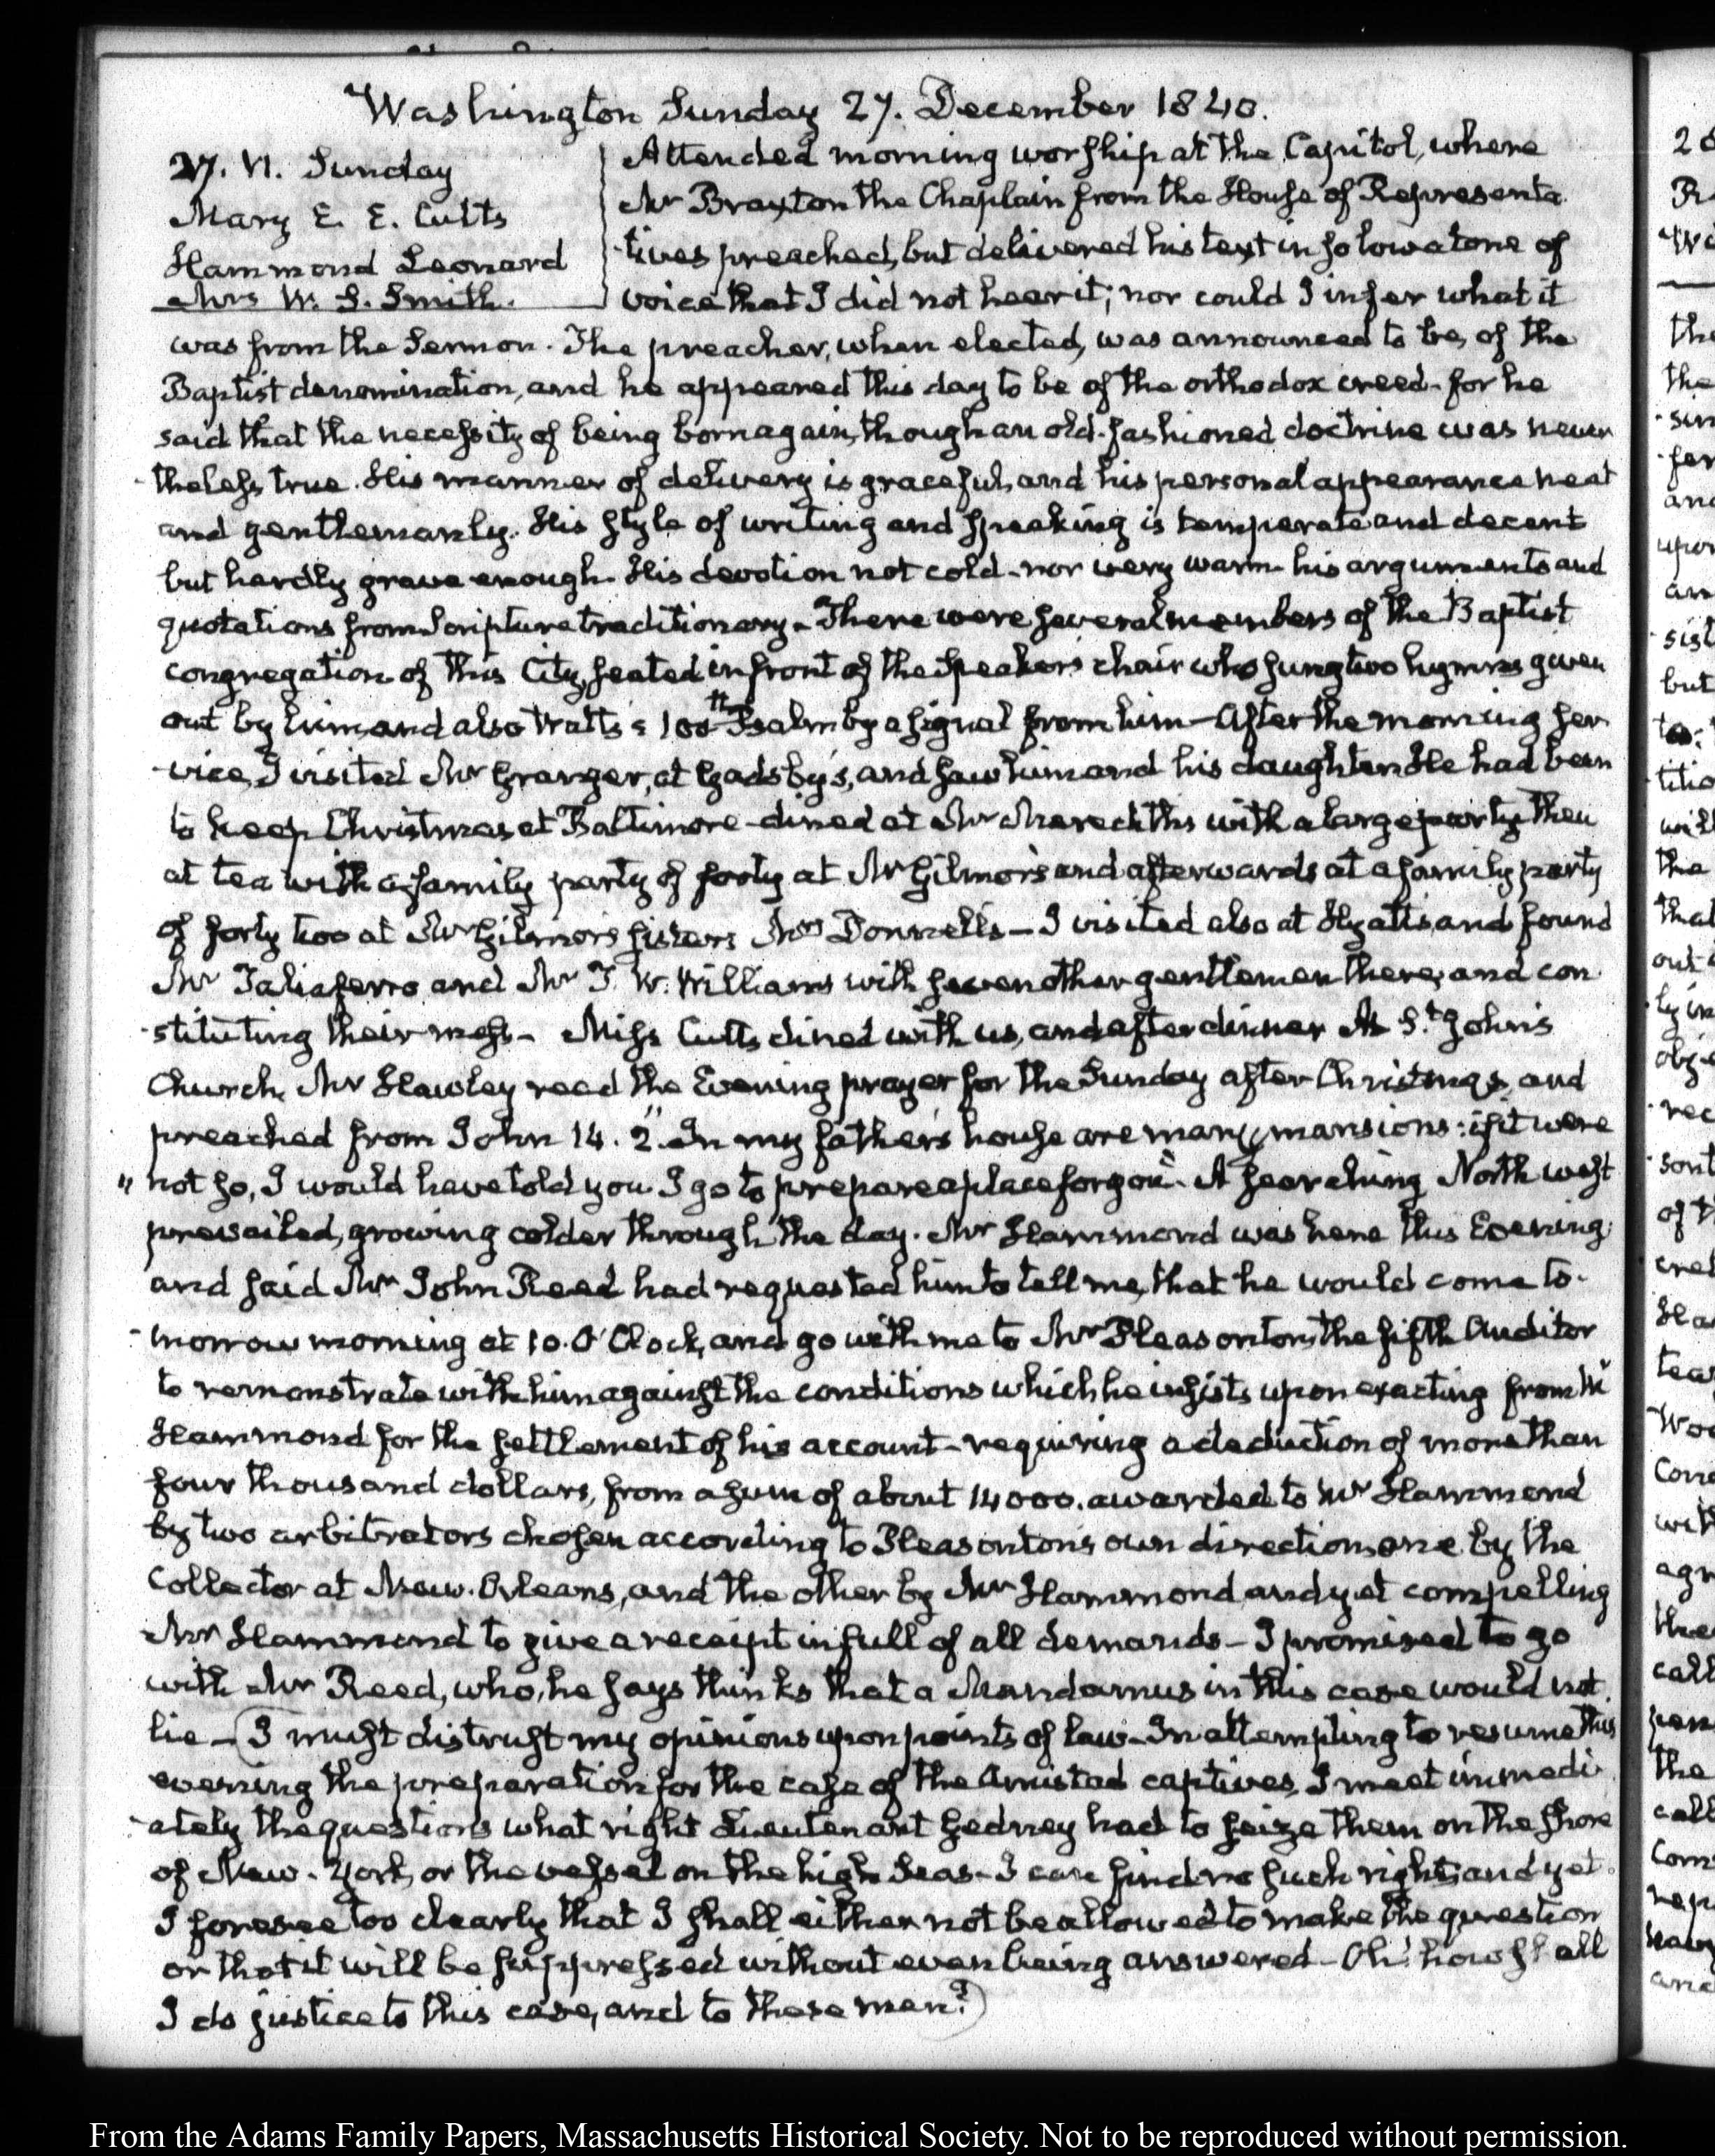 Washington Sunday 27. December 1840.
27. VI. Sunday
Mary E. E. Cutts
Hammond Leonard
Mrs W. S. Smith.
Attended morning worship at the Capitol, where
Mr Braxton the Chaplain from the House of Representa
-tives preached, but delivered his text in so low a tone of
voice that I did not hear it; nor could I infer what it
was from the Sermon. The preacher, when elected, was announced to be, of the
Baptist denomination, and he appeared this day to be of the orthodox creed - for he
said that the necessity of being born again, though an old-fashioned doctrine was never
-theless true. His manner of delivery is graceful, and his personal appearance neat
and gentlemanly. His style of writing and speaking is temperate and decent
but hardly grave enough. His devotion not cold - nor very warm - his arguments and
quotations from Scripture traditionary - There were several members of the Baptist
congregation of this City, seated in front of the Speaker's chair who sung two hymns given
out by him, and also Watts's 100th Psalm by a signal from him - After the morning ser
-vice, I visited Mr Granger, at Gadsby's, and saw him and his daughter. He had been
to keep Christmas at Baltimore - dined at Mr Meredith's with a large party, then
at tea with a family party of forty at Mr Gilmor's and afterwards at a family party
of forty two at Mr Gilmor's sisters Mrs Donnell's - I visited also at Hyatts and found
Mr Taliaferro and Mr T. W. Williams with seven other gentlemen there, and con
-stituting their mess - Miss Cutts dined with us, and after dinner At St. John's
Church, Mr Hawley read the Evening prayer for the Sunday after Christmas, and
preached from John 14. 2. "In my father's house are many mansions: if it were
" not so, I would have told you. I go to prepare a place for you" - A searching North west
prevailed, growing colder through the day. Mr Hammond was here this Evening;
and said Mr John Reed had requested him to tell me, that he would come to-
-morrow morning at 10. O'Clock, and go with me to Mr Pleasonton, the fifth Auditor
to remonstrate with him against the conditions which he insists upon exacting from Mr
Hammond for the settlement of his account - requiring a deduction of more than
four thousand dollars, from a sum of about 14000. awarded to Mr Hammond
by two arbitrators chosen according to Pleasonton's own direction, one by the
Collector at New-Orleans, and the other by Mr Hammond, and yet compelling
Mr Hammond to give a receipt in full of all demands - I promised to go
with Mr Reed, who, he says thinks that a Mandamus in this case would not
lie - (I must distrust my opinions upon points of law - In attempting to resume this
evening the preparation for the case of the Amistad captives, I meet immedi
-ately the questions what right Lieutenant Gedney had to seize them on the shore
of New-York, or the vessel on the high Seas - I can find no such right, and yet
I foresee too clearly that I shall either not be allowed to make the question
or that it will be suppressed without even being answered - Oh! how shall
I do justice to this case, and to these men?)
From the Adams Family Papers, Massachusetts Historical Society. Not to be reproduced without permission.